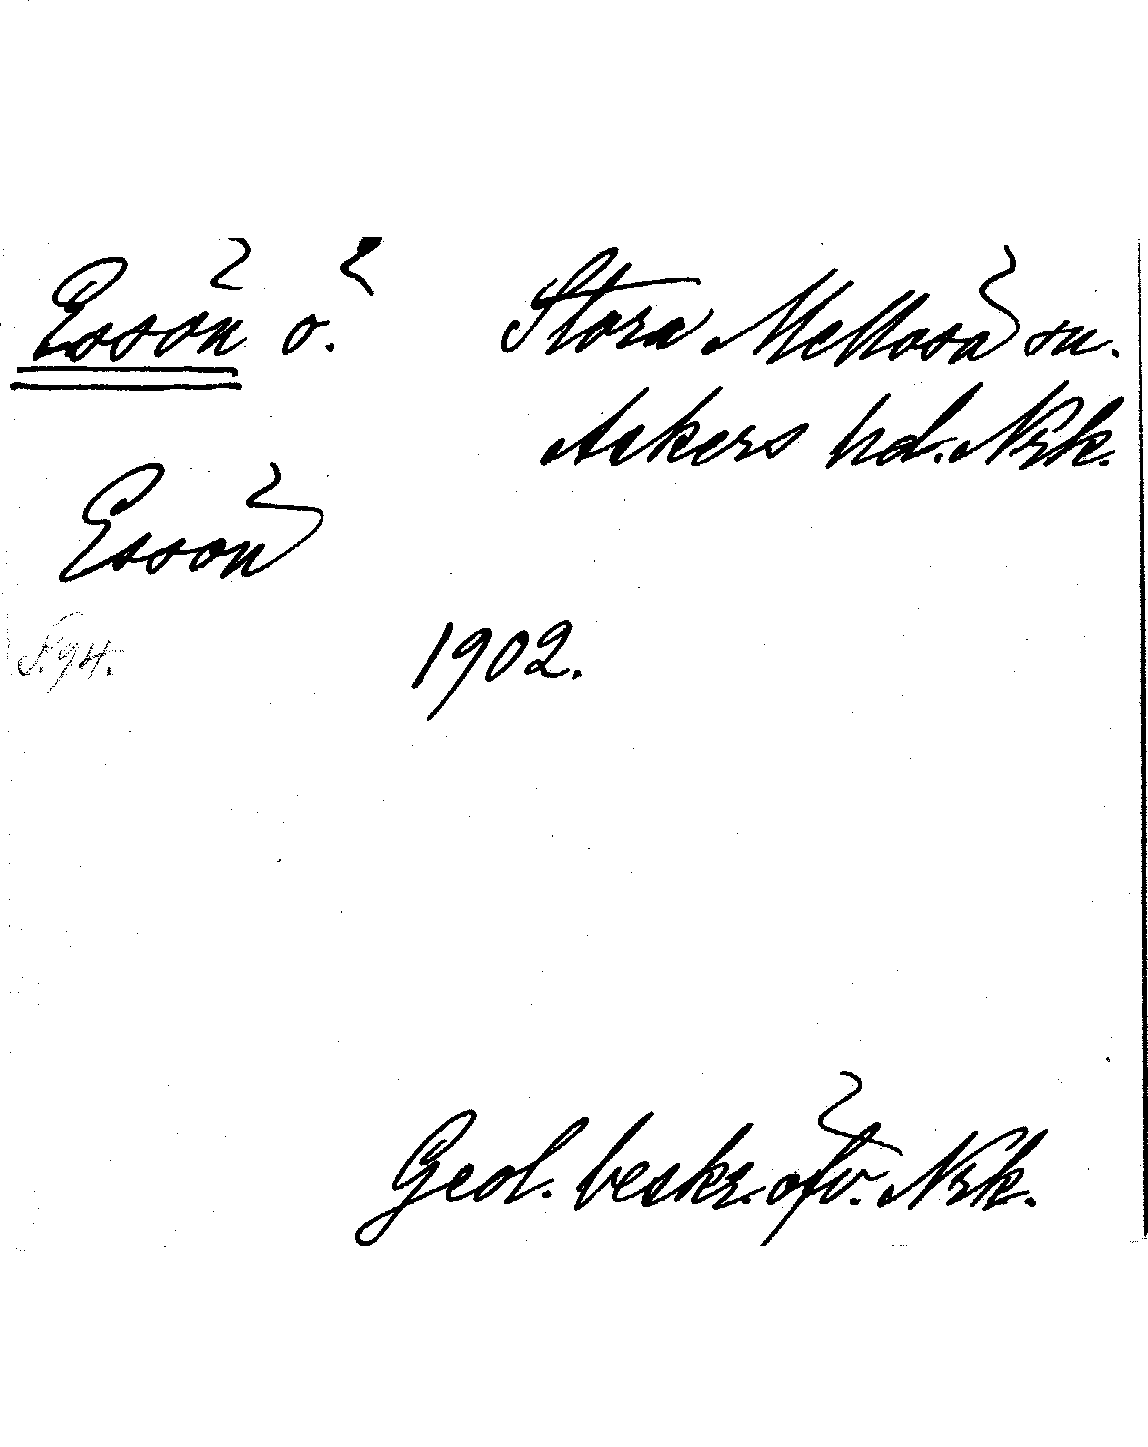 Essön ö. Stora Mellösa sn.
Askers hd. Nrk.
Essön
S. 94. 1902.
Geol. beskr. öfv. Nrk.